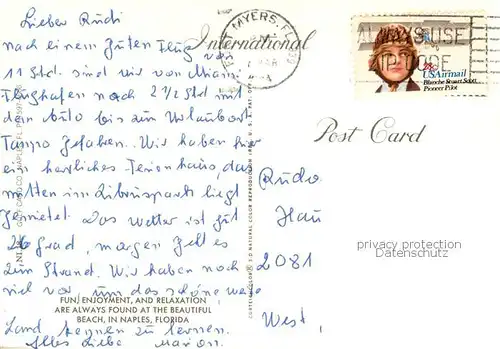 Lieber Rudi
nach einem guten Flug von
11 Std. sind wir von Miami
Flughafen nach 2 1/2 Std mit
dem Auto bis zum Urlaubsort
gefahren. Wir haben hier
ein herrliches Ferienhaus, das
mitten im liegt
gemietet. Das Wetter ist gut
26 Grad, morgen geht es
zum Strand. Wir haben noch
viel vor, um das schöne
FUN, ENJOYMENT, AND RELAXATION
ARE ALWAYS FOUND AT THE BEAUTIFUL
BEACH, IN NAPLES, FLORIDA
Land kennen zu lernen.
Alles Liebe Marion.
International
FORT MYERS, FL
ALWAYS USE
ZIP CODE
28c
USAirmail
Blanche Stuart Scott
Pioneer Pilot
Post Card
privacy protection
Datenschutz
2081